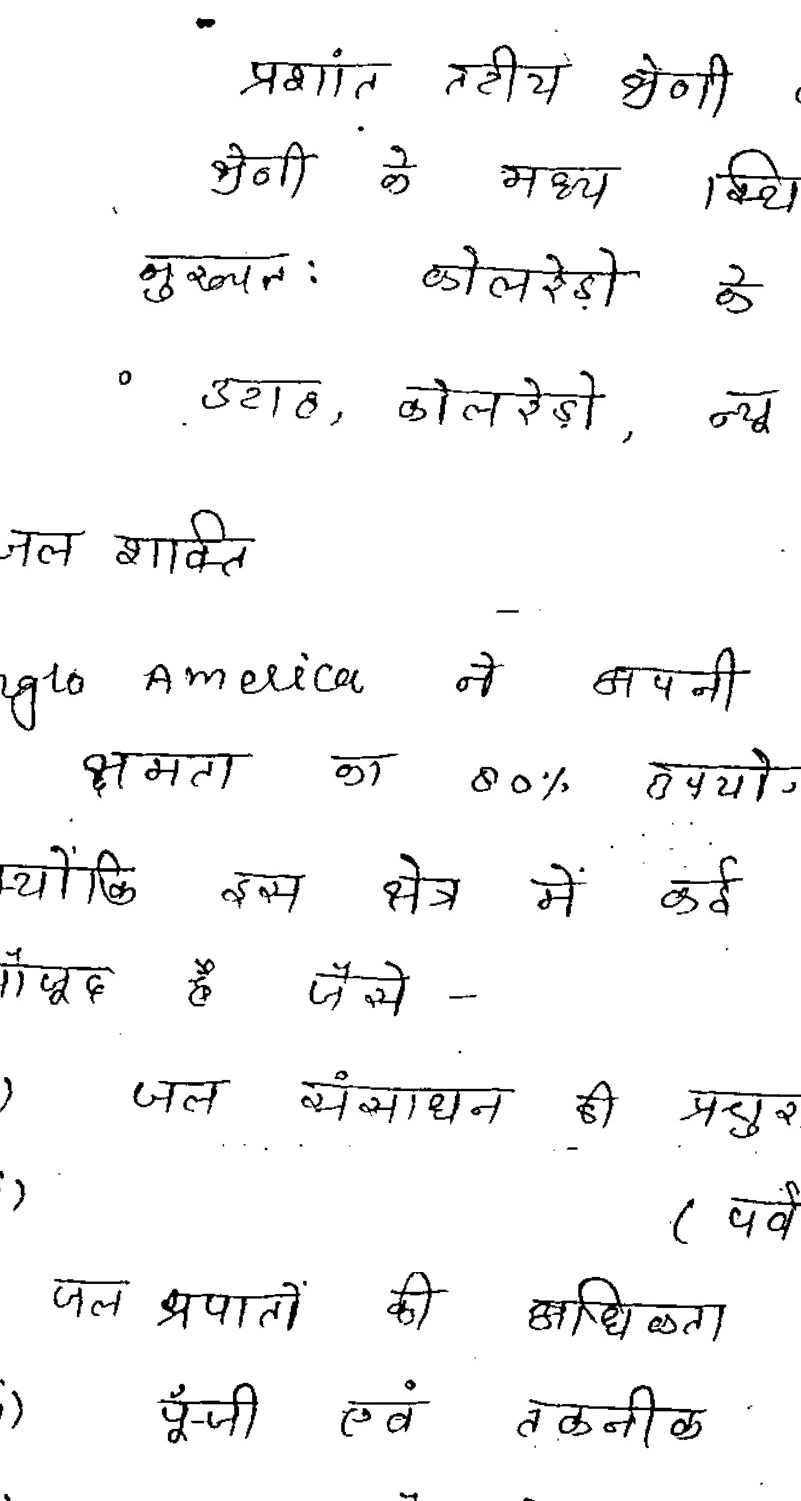 प्रशांत तटीय श्रेणी
श्रेणी के मध्य स्थि
मुख्यतः कोलरेडो के
उटाह, कोलरेडो, न्यू
जल शक्ति
nglo America ने अपनी
क्षमता का 80% उपयो
क्योंकि इस क्षेत्र में कई
मौजूद है जैसे –
) जल संसाधन की प्रचुर
) ( पर्व
जल प्रपातों की अधिकता
) पूँजी एवं तकनीक